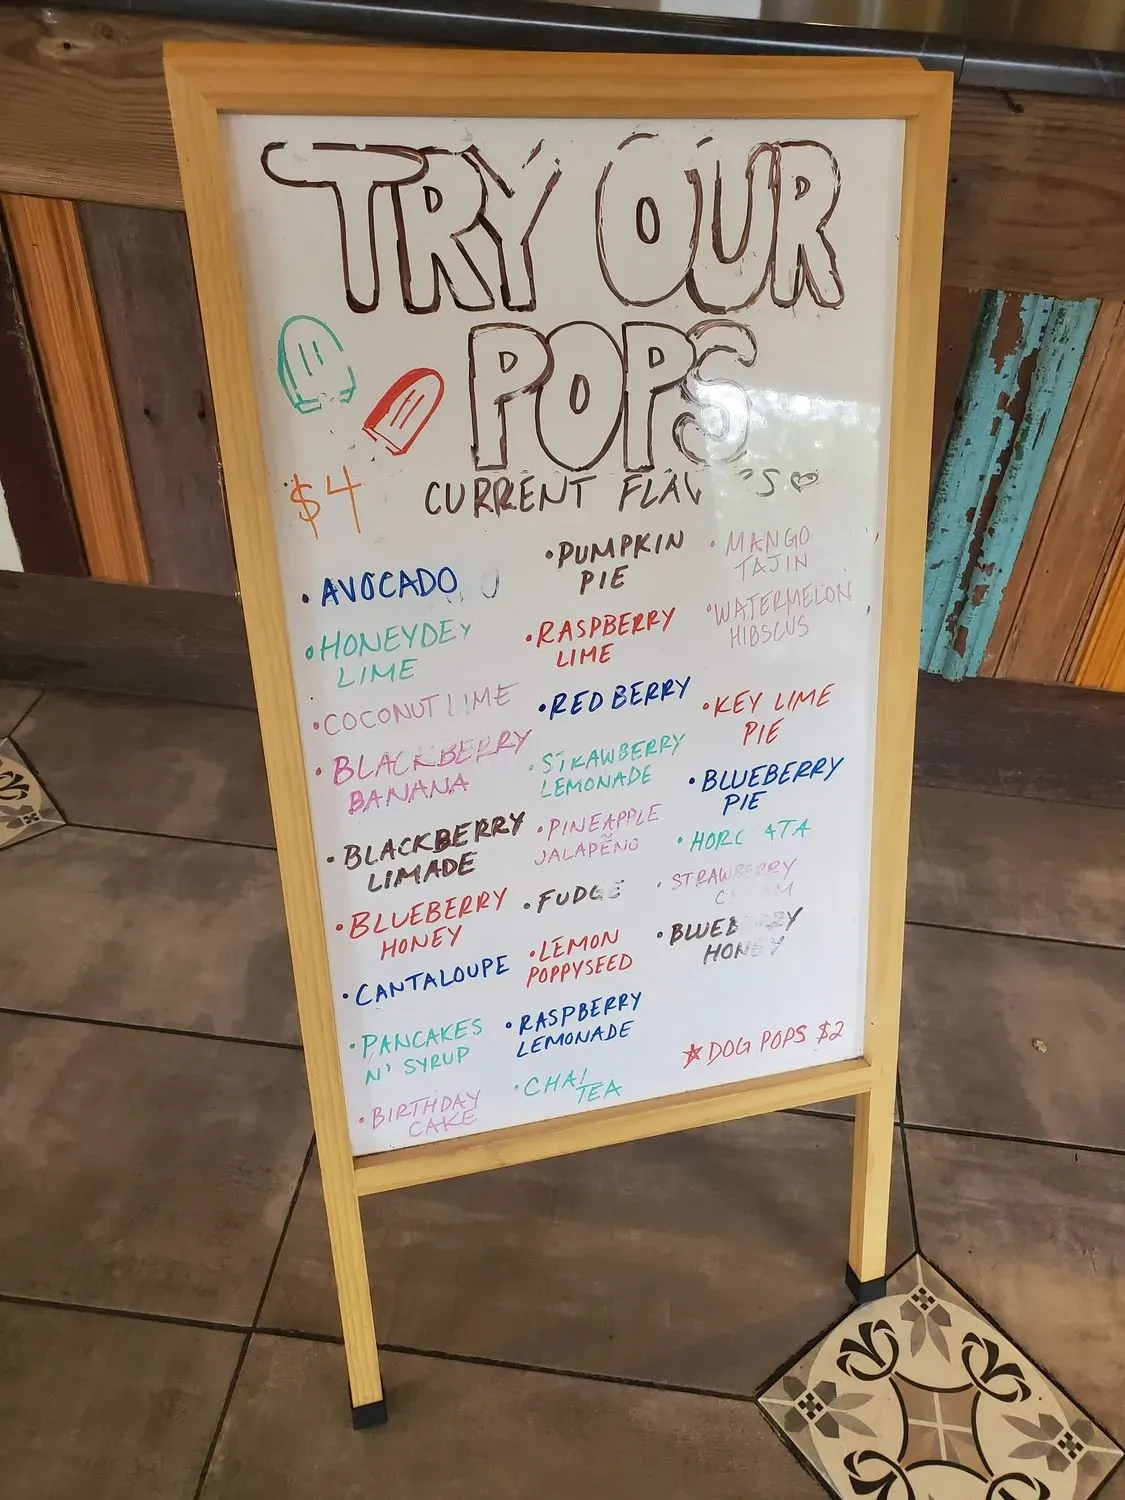 TRY OUR
POPS
$4
CURRENT
• AVOCADO
• HONEYDEY
LIME
• COCONUT LIME
• BLACKBERRY
BANANA
• BLACKBERRY
LIMADE
• BLUEBERRY
HONEY
• CANTALOUPE
• PANCAKES
N' SYRUP
• BIRTHDAY
CAKE
• PUMPKIN
PIE
• RASPBERRY
LIME
• RED BERRY
• STRAWBERRY
LEMONADE
• PINEAPPLE
JALAPEÑO
• FUDGE
• LEMON
POPPYSEED
• RASPBERRY
LEMONADE
• CHAI
TEA
• MANGO
TAJIN
• WATERMELON
HIBSCUS
• KEY LIME
PIE
• BLUEBERRY
PIE
• HORC ATA
• STRAWBERRY
• BLUEBERRY
HONEY
☆ DOG POPS $2